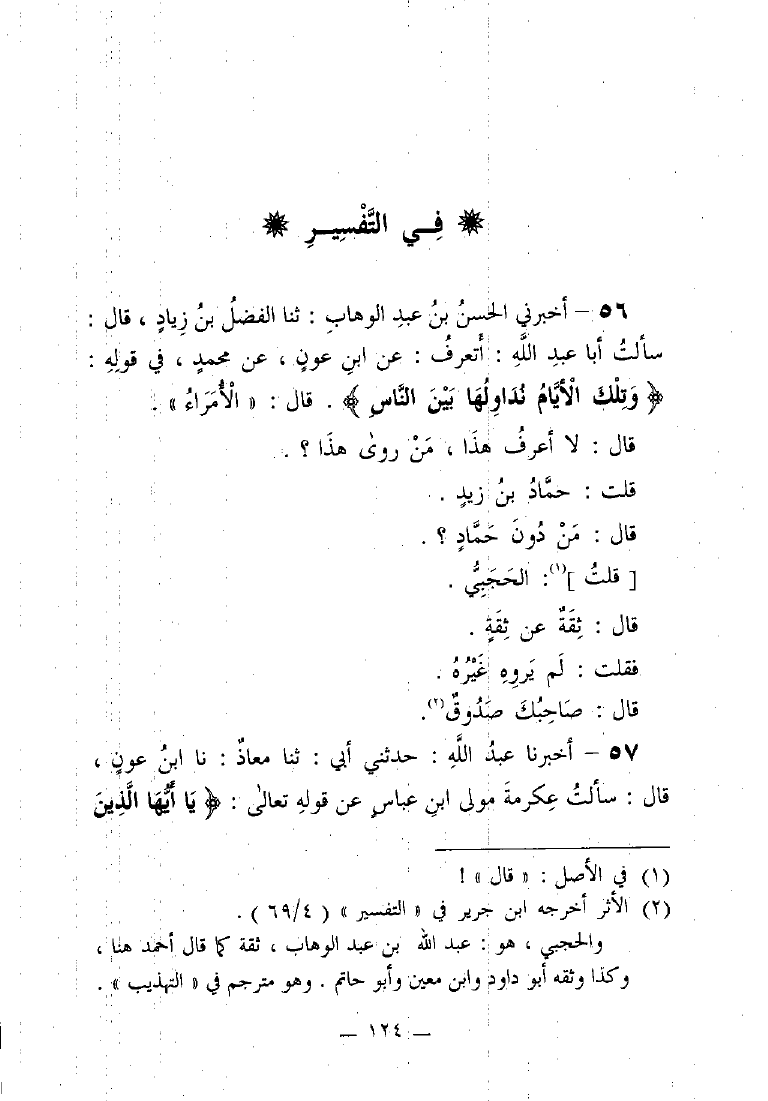 * فِي التَّفْسِيرِ *
٥٦ – أخبرني الحسنُ بنُ عبدِ الوهابِ : ثنا الفضلُ بنُ زيادٍ ، قال :
سألتُ أبا عبدِ اللَّهِ : أَتعرفُ : عن ابنِ عونٍ ، عن محمدٍ ، في قولِهِ :
﴿ وَتِلْكَ الْأَيَّامُ نُدَاوِلُهَا بَيْنَ النَّاسِ ﴾ . قال : « الْأُمَرَاءُ » .
قال : لا أعرفُ هذَا ، مَنْ روىٰ هذَا ؟ .
قلت : حمَّادُ بنُ زيدٍ .
قال : مَنْ دُونَ حَمَّادٍ ؟ .
[ قلتُ ](١): الحَجَبِيُّ .
قال : ثِقَةٌ عن ثِقَةٍ .
فقلت : لَم يَروِهِ غَيْرُهُ .
قال : صَاحِبُكَ صَدُوقٌ(٢).
٥٧ – أخبرنا عبدُ اللَّهِ : حدثني أبي : ثنا معاذٌ : نا ابنُ عونٍ ،
قال : سألتُ عِكرمةَ مولى ابنِ عباسٍ عن قولهِ تعالىٰ : ﴿ يَا أَيُّهَا الَّذِينَ
(١) في الأصل : « قال » !
(٢) الأثر أخرجه ابن جرير في « التفسير » ( ٦٩/٤ ) .
والحجبي ، هو : عبد الله بن عبد الوهاب ، ثقة كما قال أحمد هنا ،
وكذا وثقه أبو داود وابن معين وأبو حاتم . وهو مترجم في « التهذيب » .
— ١٢٤ —